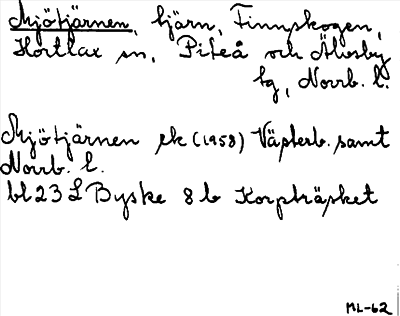 Mjötjärnen, tjärn, Finnskogen,
Hortlax sn, Piteå och Älvsby
tg, Norrb. l.
Mjötjärnen ek (1958) Västerb. samt
Norrb. l.
bl 23 L Byske 8 b Korsträsket
ML-62